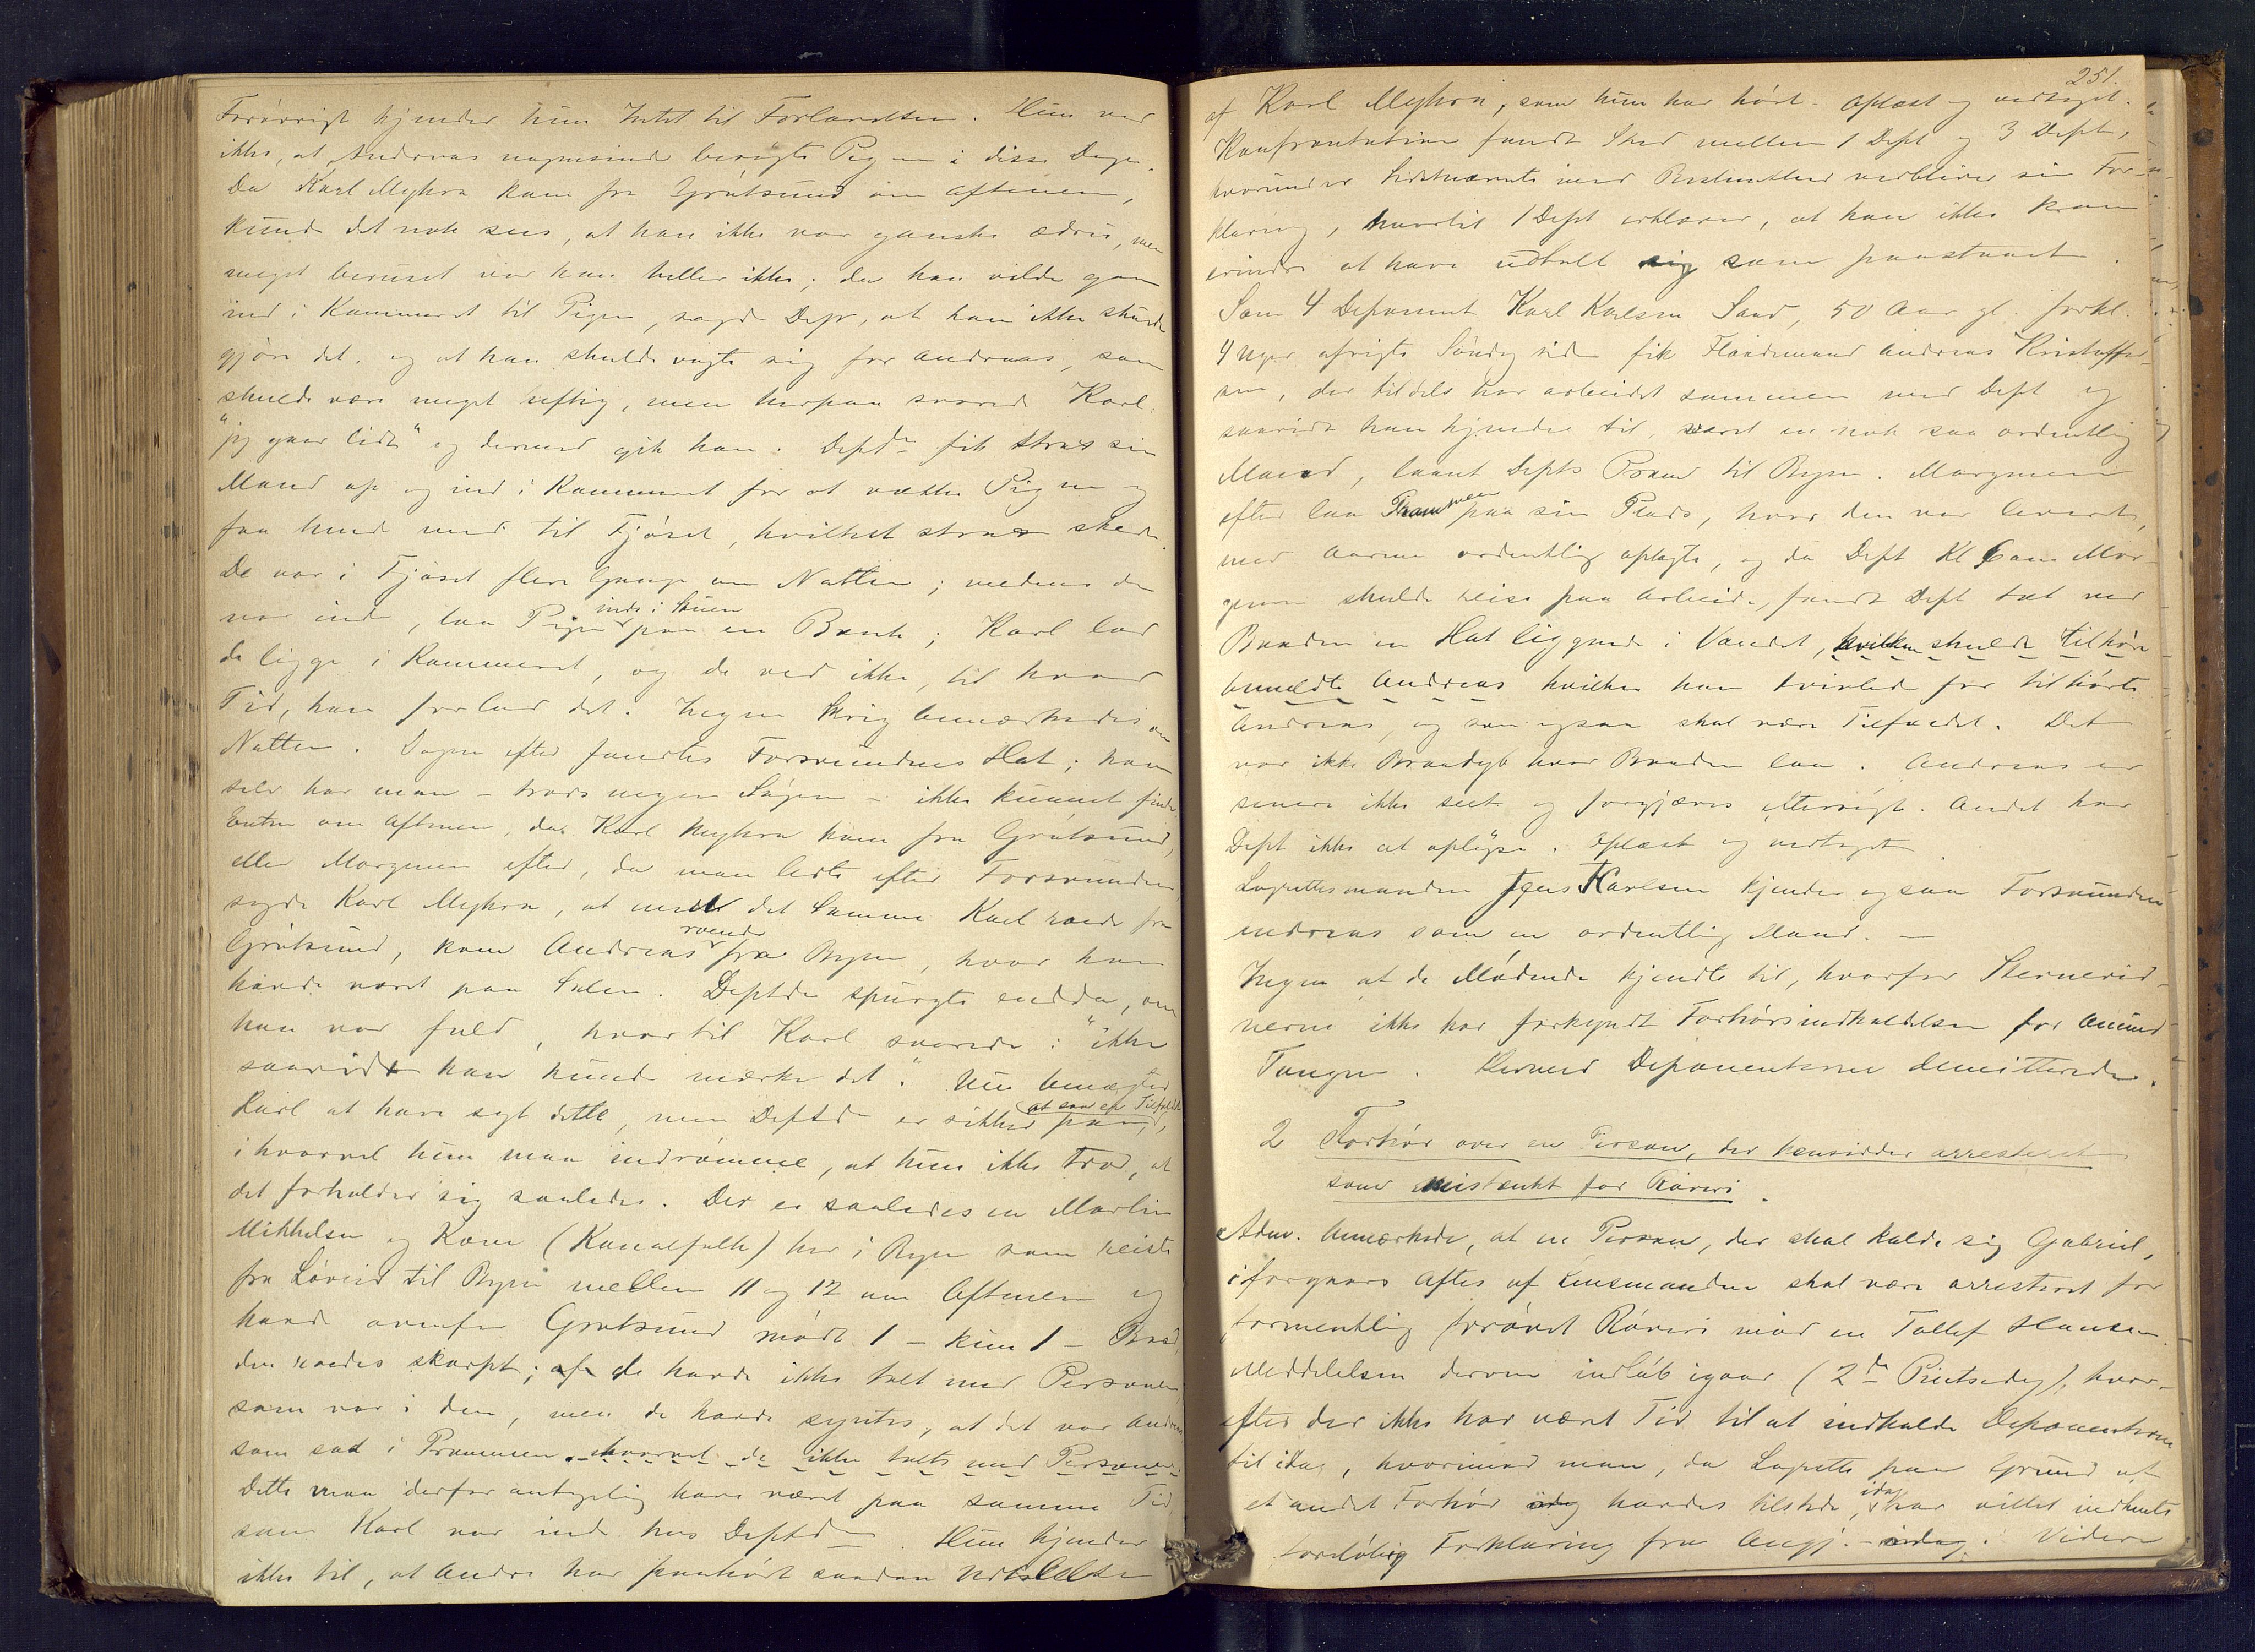 Forøvrigt kjender hun Intet til Forlovelsen. Hun ved
ikke, at Andreas nogensinde besøgte Pigen i disse Dage.
Da Karl Myhra kom fra Grøtsund om Aftenen,
kunde det nok sees, at han ikke var ganske ædru, men
meget beruset var han heller ikke; da han vilde gaa
ind i Kammeret til Pigen, sagde Dept, at han ikke skulde
gjøre det, og at han skulde vogte sig for Andreas, som
skulde være meget heftig, men herpaa svared Karl
"jeg gaar lidt" og dermed gik han. Deptd fik strax sin
Mand op og ind i Kammeret for at vække Pigen og
faa hende med til Fjøset, hvilket strax skede.
De var i Fjøset flere Gange om Natten; medens de
var inde, laa Pigen inde i Stuen paa en Bænk; Karl lod
de ligge i Kammeret, og de ved ikke, til hvad
Tid, han forlod det. Ingen Skrig bemærkedes om
Natten. Dagen efter fandtes Forsvundnes Hat; ham
selv har man - trods megen Søgen - ikke kunnet finde.
Enten om Aftenen, da Karl Myhra kom fra Grøtsund,
eller Morgenen efter, da man ledte efter Forsvundne,
sagde Karl Myhra, at med det Samme Karl roede fra
Grøtsund, kom Andreas roende fra Byen, hvor han
havde været paa Salen. Deptde spurgte endda, om
han var fuld, hvortil Karl svarede: "ikke
saavidt han kunde mærke det". Nu benægter
Karl at have sagt dette, men Deptd er sikker paa, at saa er Tilfældet,
ihvorvel hun maa indrømme, at hun ikke tror, at
det forholder sig saaledes. Der er saaledes en Martin
Mikkelsen og Kone (Kanalfolk) her i Byen som reiste
fra Løveid til Byen mellem 11 og 12 om Aftenen og
havde ovenfor Grøtsund mødt 1 - kun 1 - Baad,
den roedes skarpt; de havde ikke talt med Personen
som var i den, men de havde syntes, at det var Andreas
som sad i Prammen, ihvorvel de ikke talte med Personen.
Dette maa derfor antagelig have været paa samme Tid
som Karl var inde hos Deptd. Hun kjender
ikke til, at Andre har paahørt saadan Udtalelse
251.
af Karl Myhra, som hun har hørt. Oplæst og vedtaget.
Konfrontation fandt Sted mellem 1 Dept og 3 Dept,
hvorunder Sidstnævnte med Bestemthed vedbliver sin For-
klaring, hvortil 1 Dept erklærer, at han ikke kan
erindre at have udtalt sig som paastaaet.
Som 4 Deponent Karl Karlsen Sand, 50 Aar gl. forkl.
4 Uger afvigte Søndag siden fik Flaademand Andreas Kristoffer-
sen, der tildels har arbeidet sammen med Dept og
saavidt han kjender til, været en nok saa ordentlig
Mand, laant Depts Pram til Byen. Morgenen
efter laa Prammen paa sin Plads, hvor den var leveret,
med Aarene ordentlig oplagte, og da Dept Kl 6 om Mor-
genen skulde reise paa Arbeide, fandt Dept tæt ved
Baaden en Hat liggende i Vandet, hvilken skulde tilhøre
bemeldte Andreas hvilken han tvivled for tilhørte
Andreas, og som ogsaa skal være Tilfældet. Det
var ikke Braadyb hvor Baaden laa. Andreas er
senere ikke seet og forgjæves eftersøgt. Andet har
Dept ikke at oplyse. Oplæst og vedtaget.
Lagrettesmanden Jens Karlsen kjender ogsaa Forsvundne
Andreas som en ordentlig Mand. —
Ingen af de Mødende kjendte til, hvorfor Stevnevid-
nerne ikke har forkyndt Forhørsindkaldelsen for Amund
Tangen. Hermed Deponenterne demitterede.
2 Forhør over en Person, der hensidder arresteret
som mistænkt for Røveri.
Adm. bemærkede, at en Person, der skal kalde sig Gabriel,
iforgaars Aftes af Lensmanden skal være arresteret for
formentlig forøvet Røveri mod en Tollef Hansen.
Meddelelsen derom indløb igaar (2de Pintsedag), hvor-
efter der ikke har været Tid til at indkalde Deponenterne
til idag, hvorimod man, da Lagrette paa Grund af
et andet Forhør havdes tilstede idag, har villet indhente
foreløbig Forklaring fra Angj. - idag. Videre